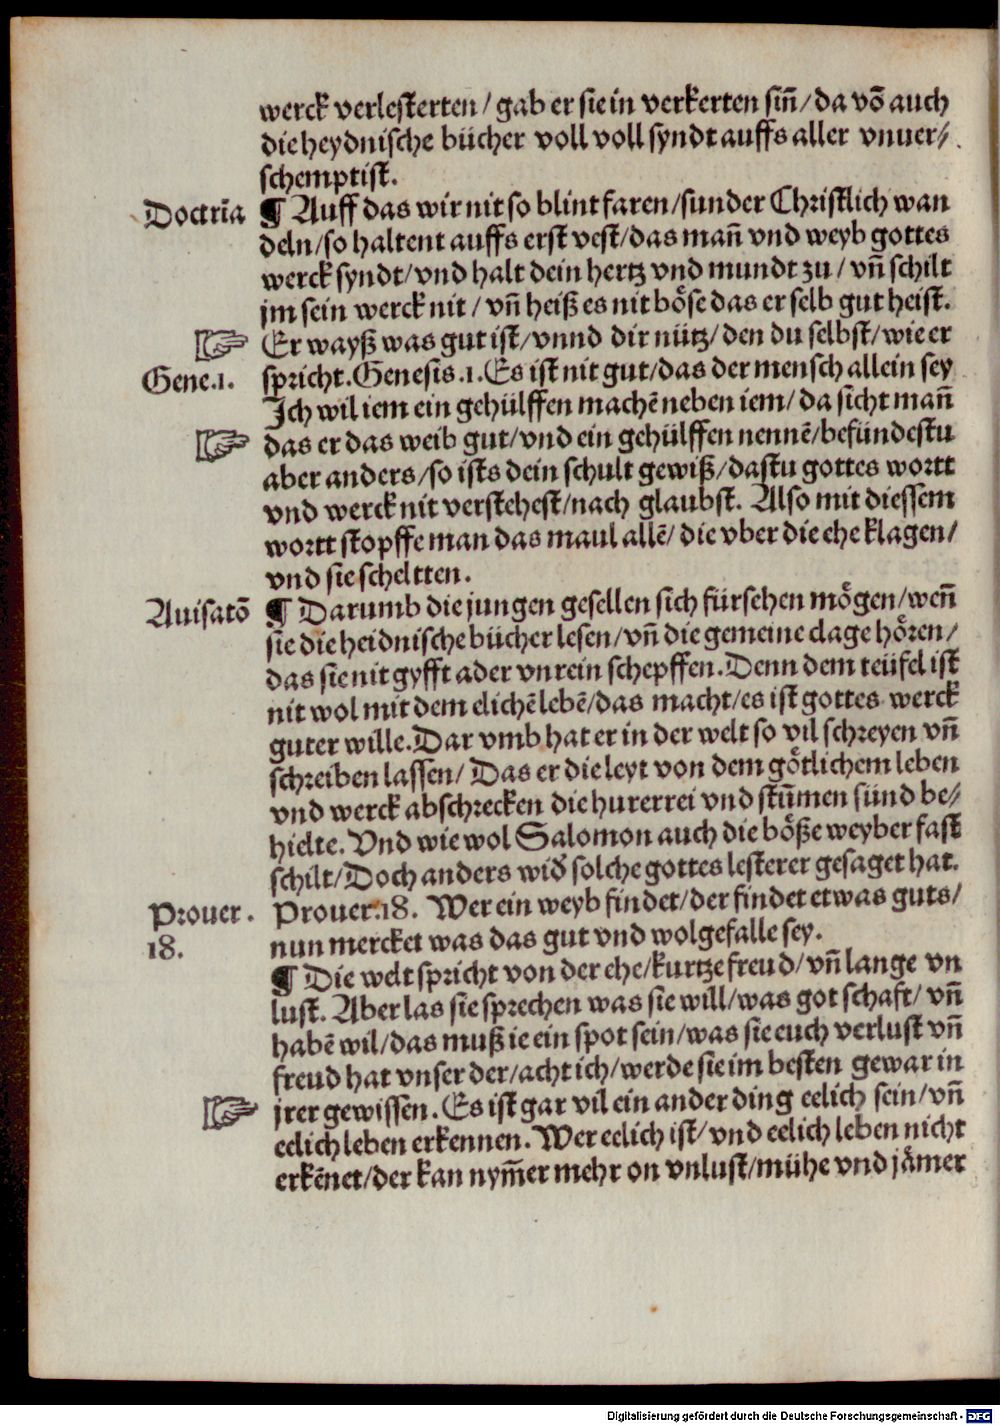 werck verlesterten / gab er sie in verkerten siñ / da võ auch
die heydnische bücher voll voll syndt auffs aller vnuer⸗
schemptist.
Doctrĩa ¶ Auff das wir nit so blint faren / sunder Christlich wan
deln / so haltent auffs erst vest / das mañ vnd weyb gottes
werck syndt / vnd halt dein hertz vnd mundt zu / vñ schilt
jm sein werck nit / vñ heiß es nit böse das er selb gut heist.
☞ Er wayß was gut ist / vnnd dir nütz / den du selbst / wie er
Gene.1. spricht. Genesis.1. Es ist nit gut / das der mensch allein sey
Ich wil iem ein gehülffen machẽ neben iem / da sicht mañ
☞ das er das weib gut / vnd ein gehülffen nennẽ / befündestu
aber anders / so ists dein schult gewiß / dastu gottes wortt
vnd werck nit verstehest / nach glaubst. Also mit diessem
wortt stopffe man das maul allẽ / die vber die ehe klagen /
vnd sie scheltten.
Auisatõ ¶ Darumb die jungen gesellen sich fürsehen mögen / weñ
sie die heidnische bücher lesen / vñ die gemeine clage hören /
das sie nit gyfft ader vnrein schepffen. Denn dem teüfel ist
nit wol mit dem elichẽ lebẽ / das macht / es ist gottes werck
guter wille. Dar vmb hat er in der welt so vil schreyen vñ
schreiben lassen / Das er die leyt von dem götlichem leben
vnd werck abschrecken die hurerrei vnd stũmen sünd be⸗
hielte. Vnd wie wol Salomon auch die böße weyber fast
schilt / Doch anders wid̕ solche gottes lesterer gesaget hat.
Prouer. Prouer.18. Wer ein weyb findet / der findet etwas guts /
18. nun mercket was das gut vnd wolgefalle sey.
¶ Die welt spricht von der ehe / kurtze freud / vñ lange vn
lust. Aber las sie sprechen was sie will / was got schaft / vñ
habẽ wil / das muß ie ein spot sein / was sie euch verlust vñ
freud hat vnser der / acht ich / werde sie im besten gewar in
☞ jrer gewissen. Es ist gar vil ein ander ding eelich sein / vñ
eelich leben erkennen. Wer eelich ist / vnd eelich leben nicht
erkẽnet / der kan nym̃er mehr on vnlust / mühe vnd jämer
Digitalisierung gefördert durch die Deutsche Forschungsgemeinschaft - DFG